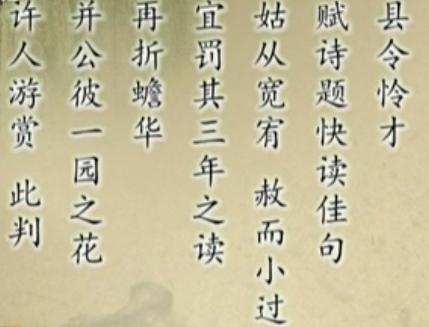 县令怜才
赋诗题快读佳句
姑从宽宥 赦而小过
宜罚其三年之读
再折蟾华
并公彼一园之花
许人游赏 此判